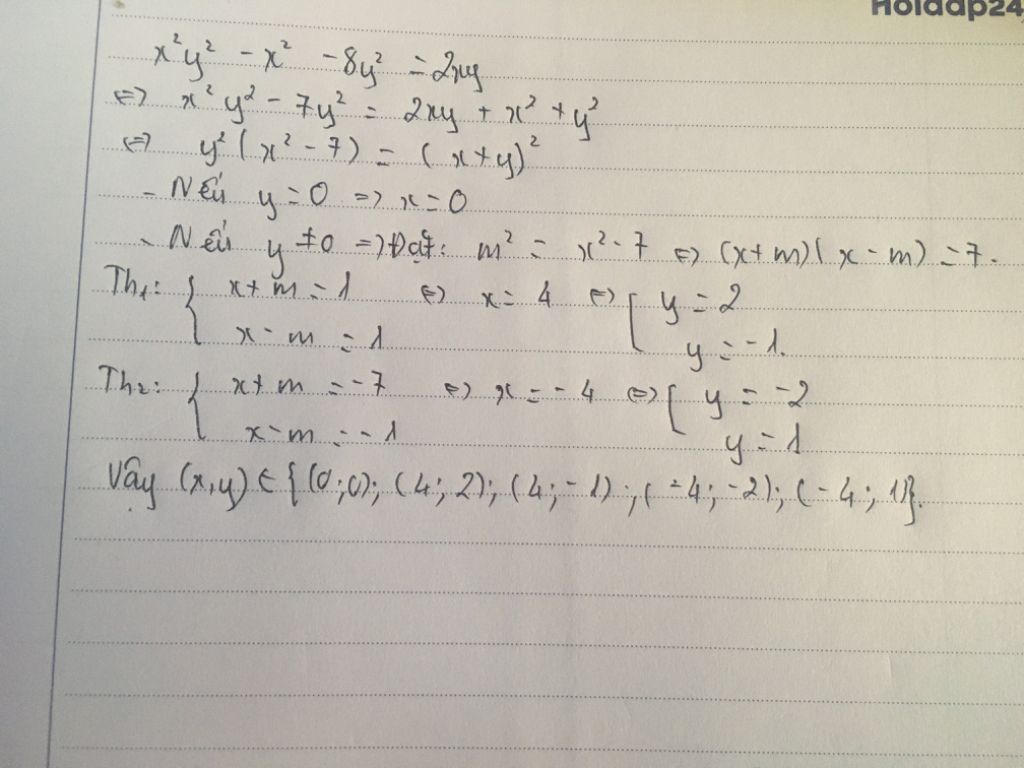 Hoidap24
x²y² - x² - 8y² = 2xy
⇔ x²y² - 7y² = 2xy + x² + y²
⇔ y²(x² - 7) = (x+y)²
- Nếu y = 0 => x = 0
- Nếu y ≠ 0 => Đặt: m² = x² - 7 ⇔ (x+m)(x-m) = 7.
Th₁: { x+m = 1 ⇔ x = 4 ⇔ [ y = 2
x-m = 1 y = -1.
Th₂: { x+m = -7 ⇔ x = -4 ⇔ [ y = -2
x-m = -1 y = 1
Vậy (x,y) ∈ {(0;0); (4;2); (4;-1); (-4;-2); (-4;1)}.